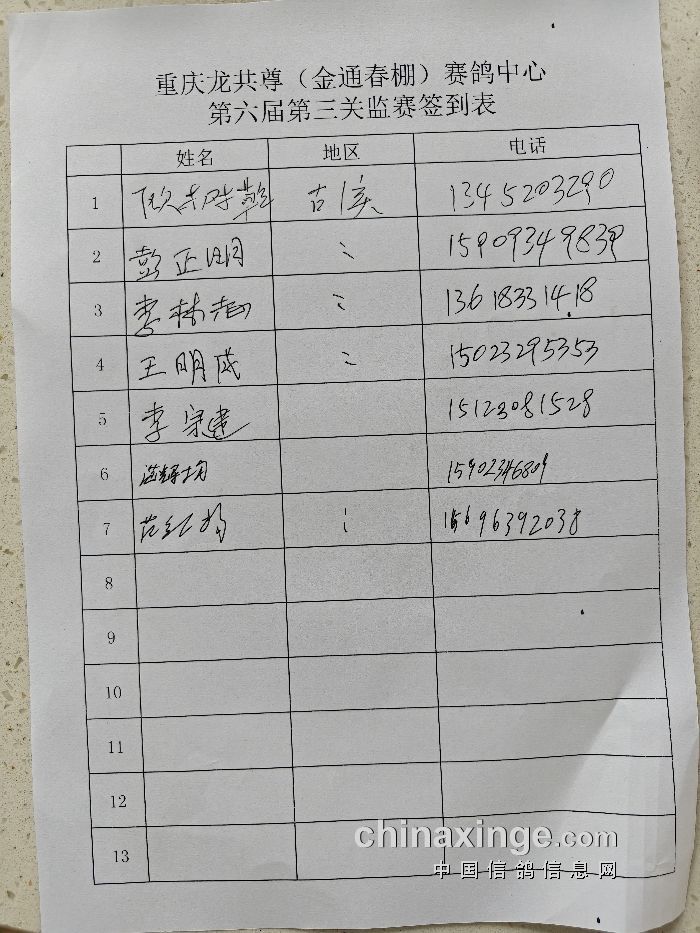 重庆龙共尊（金通春棚）赛鸽中心
第六届第三关监赛签到表
姓名 地区 电话
1 1345203290
2 彭正明 〃 15909349839
3 李林 〃 13618331418
4 王明成 〃 15023295353
5 李宗建 15123081528
6 15902346809
7 范红 15696392038
8
9
10
11
12
13
chinaxinge.com
中国信鸽信息网